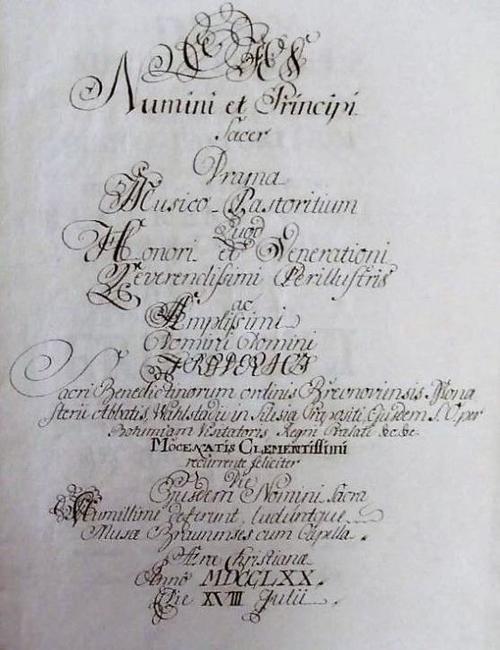 Numini et Principi
Sacer
Drama
Musico-Pastoritium
Quod
Honori et Venerationi
Reverendissimi Perillustris
ac
Amplissimi
Domini Domini
Sacri Benedictinorum ordinis Brevnoviensis Mona
sterii Abbatis, Wahlstadii in Silesia Praepositi, Ejusdem S. O. per
Bohemiam Visitatoris Regni Praelati &c &c
MoeceNatis CLementissimi
recurrente feliciter
Die
Ejusdem Nomini Sacra
Humillime deferunt, luduntque
Musae Braunenses cum Capella.
Aerae Christianae
Anno MDCCLXX.
Die XVIII Julii.